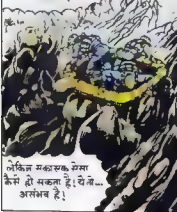 लेकिन मकारक ऐसा
कैसे हो सकता है! ये तो...
असंभव है!